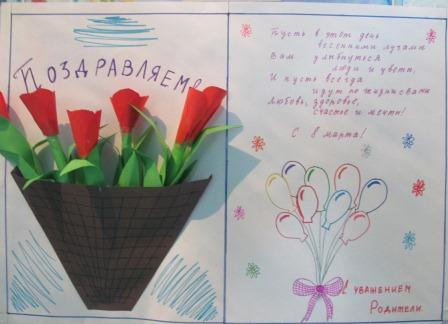 Поздравляем!
Пусть в этот день
весенними лучами
Вам улыбнуться
люди и цветы,
И пусть всегда
идут по жизни с вами
Любовь, здоровье,
счастье и мечты!
С 8 марта!
С уважением
Родители.